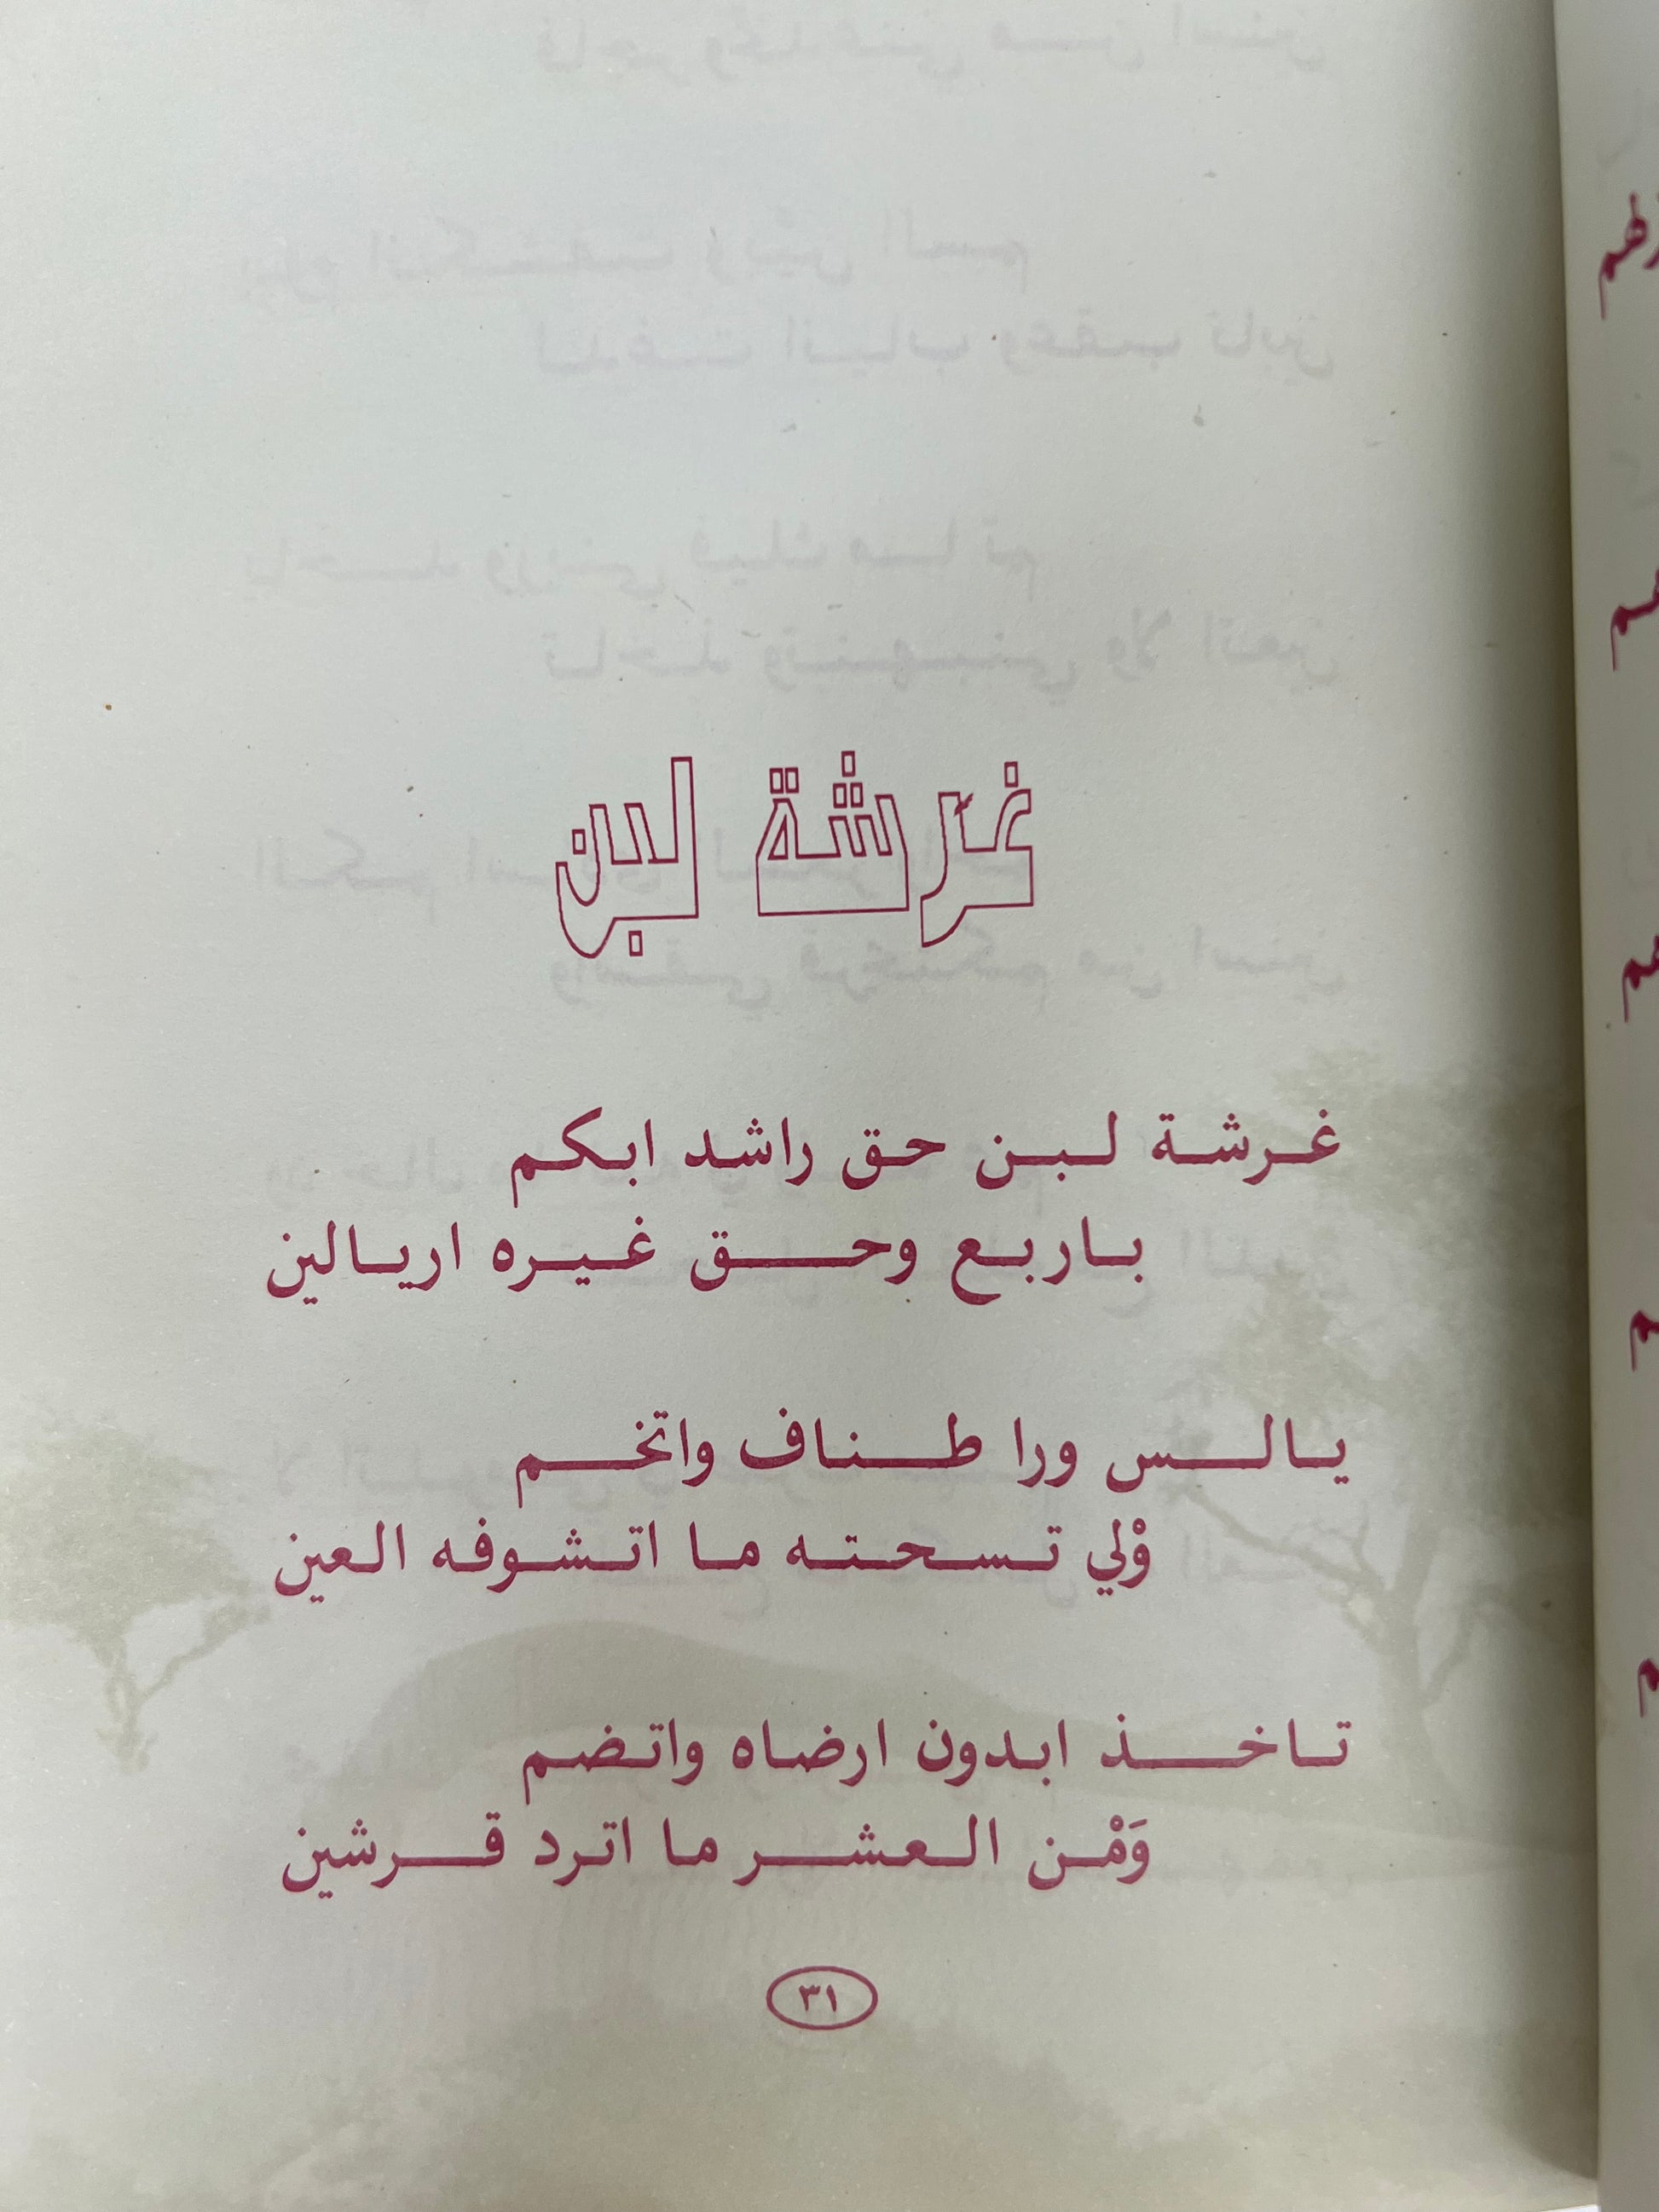 غرشة لبن
غرشة لبن حق راشد ابكم
باربع وحق غيره اريالين
يالس ورا طناف واتخم
وْلي تسحته ما اتشوفه العين
تاخذ ابدون ارضاه واتضم
وَمْن العشر ما اترد قرشين
٣١